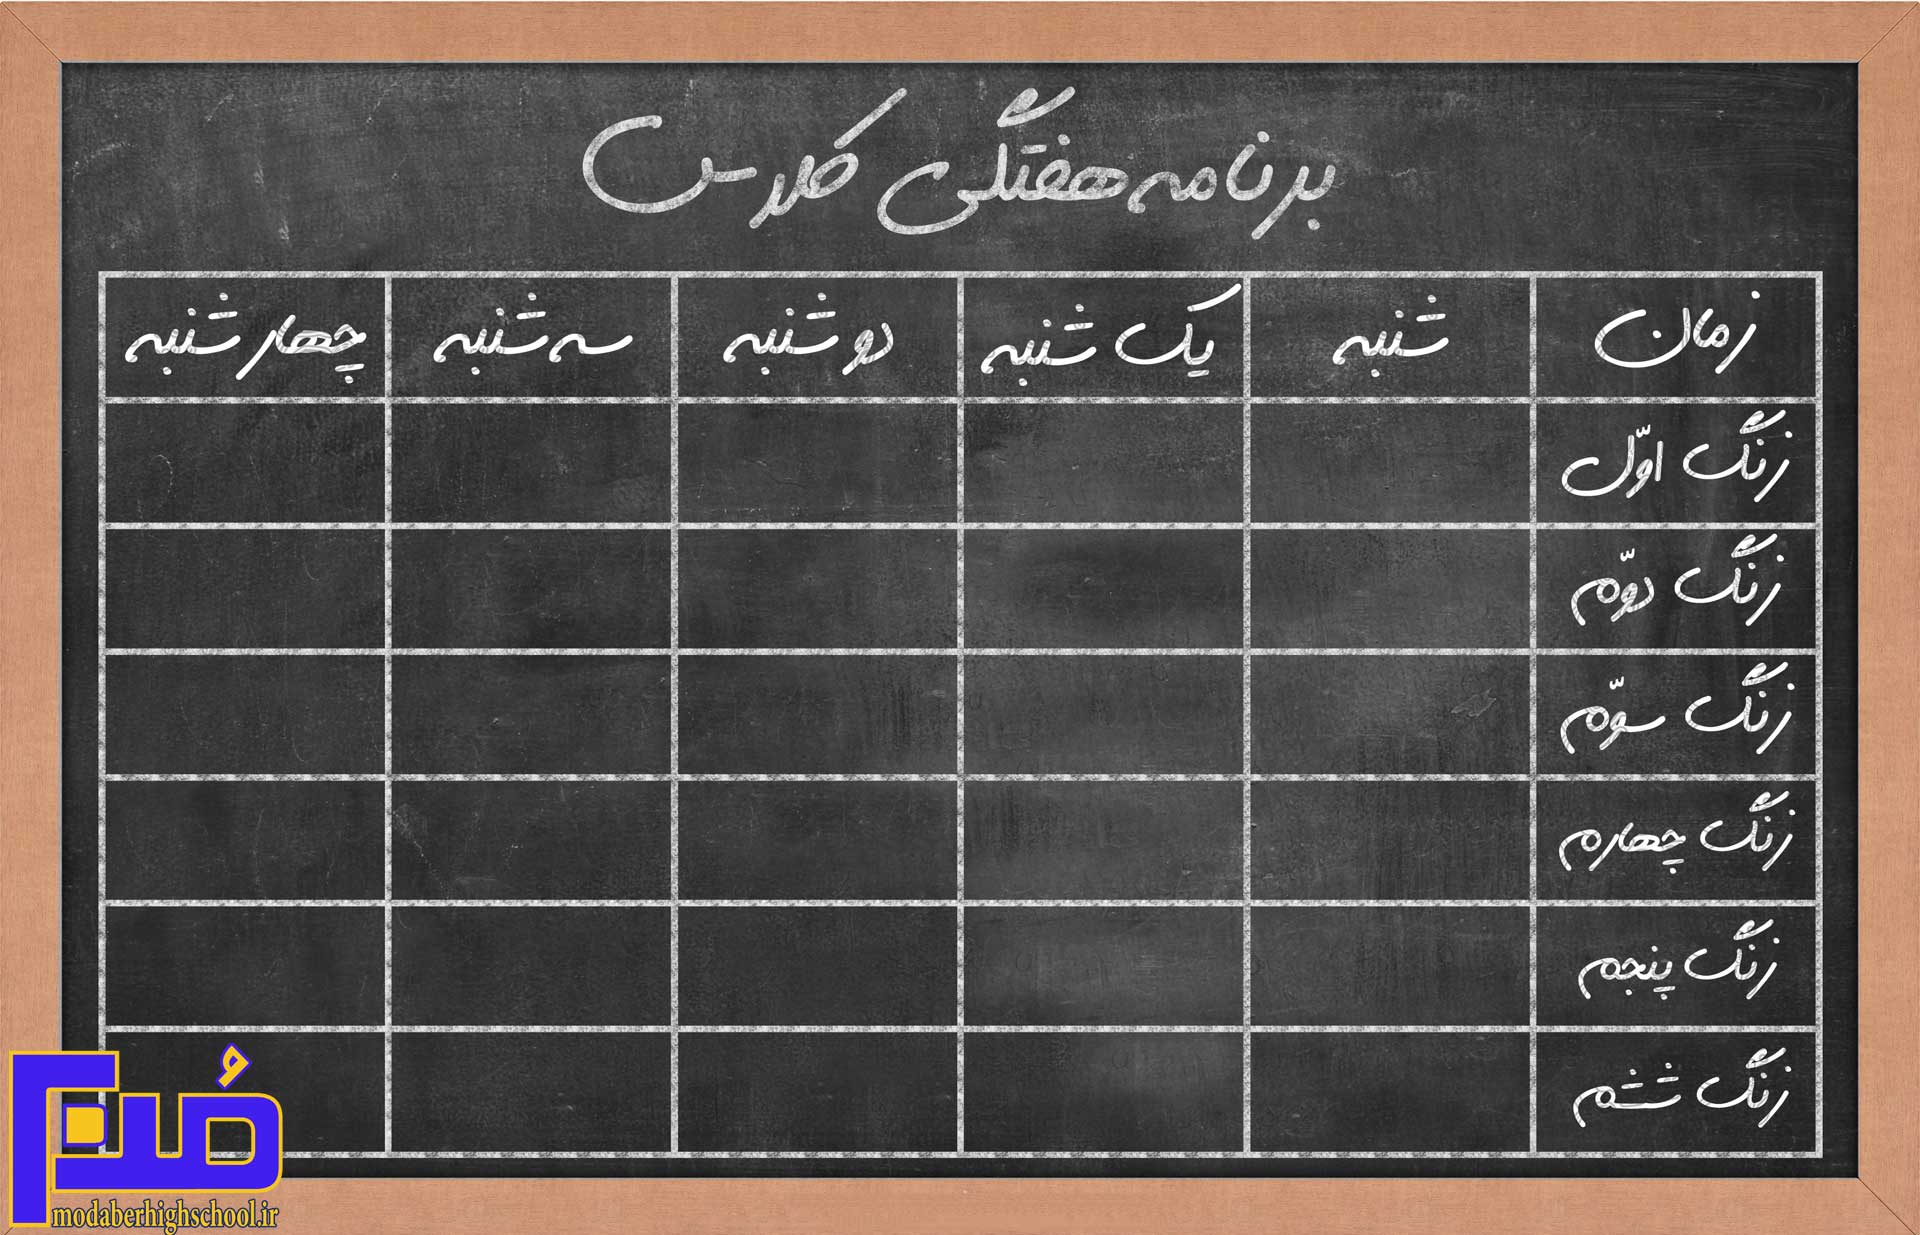 برنامه هفتگی کلاس
زمان شنبه یک شنبه دو شنبه سه شنبه چهار شنبه
زنگ اوّل
زنگ دوّم
زنگ سوّم
زنگ چهارم
زنگ پنجم
زنگ ششم
مُدبر
modaberhighschool.ir